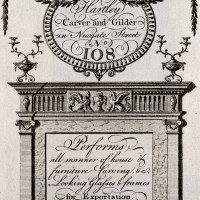 Hartley
Carver and Gilder
in Newgate Street
No.
108
Performs
all manner of house &
furniture Carving, &c.
Looking Glasses & frames
for Exportation.